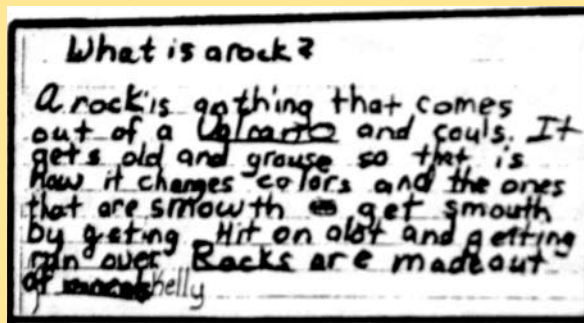 What is a rock?
A rock is a thing that comes
out of a Volcano and couls. It
gets old and grouse so that is
how it changes colors and the ones
that are smowth get smouth
by geting Hit on alot and getting
ran over Rocks are made out
of helly